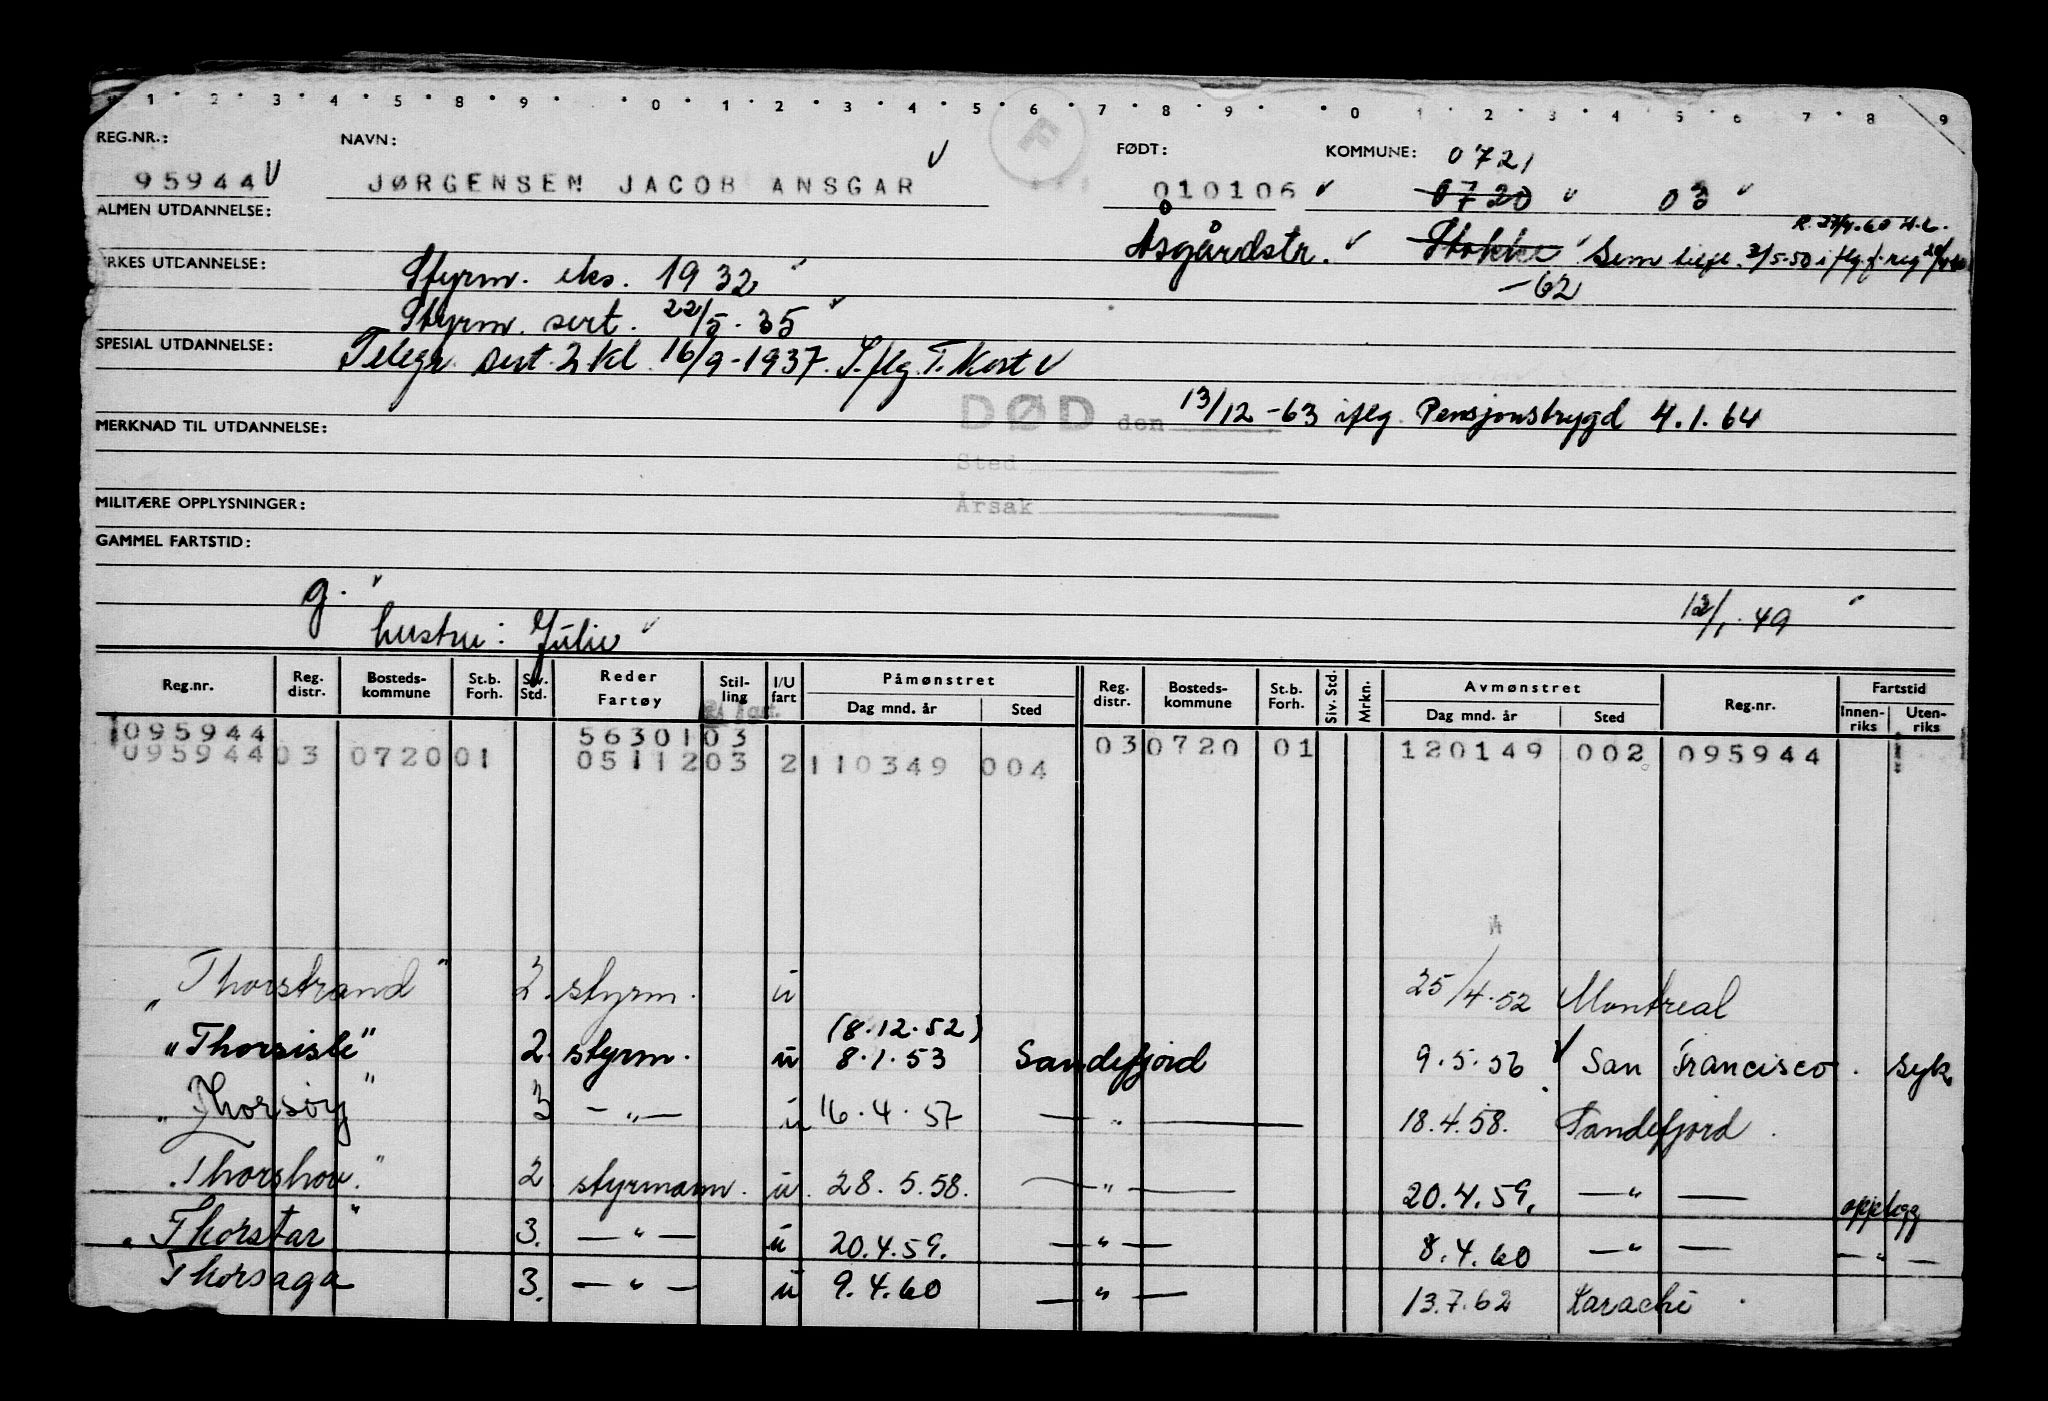 1 2 3 4 5 8 9 0 1 2 3 4 5 6 7 8 9 0 1 2 3 4 5 6 7 8 9
REG.NR.: NAVN: F FØDT: KOMMUNE: 0721
95944 JØRGENSEN JACOB ANSGAR 010106 0720 03
ALMEN UTDANNELSE:
Åsgårdstr. Stokke Sem
YRKES UTDANNELSE: Styrm. eks. 1932 -62
Styrm. sert. 22/5.35
SPESIAL UTDANNELSE: Telegr. sert. 2 kl. 16/9-1937. I.flg. T. Kort
DØD den 13/12-63 iflg. Pensjonstrygd 4.1.64
MERKNAD TIL UTDANNELSE:
Sted
MILITÆRE OPPLYSNINGER: Årsak
GAMMEL FARTSTID:
g. 12/1.49
hustru: Julie
Reg.nr. Reg. distr. Bosteds-kommune St.b. Forh. Siv. Std. Reder Fartøy Stil-ling I/U fart Påmønstret Dag mnd. år Sted Reg. distr. Bosteds-kommune St.b. Forh. Siv. Std. Mrkn. Avmønstret Dag mnd. år Sted Reg.nr. Fartstid Innen-riks Uten-riks
095944 5630103 03 0720 01 120149 002 095944
095944 03 0720 01 0511203 2 110349 004
"Thorstrand" 2. styrm. u 25/4.52 Montreal
(8.12.52)
"Thorsisle" 2. styrm. u 8.1.53 Sandefjord 9.5.56 San Francisco. syk.
"Thorsøy" 3 — " — u 16.4.57 — " — 18.4.58. Sandefjord.
"Thorshov." 2 styrmann. u. 28.5.58. — " — 20.4.59. — " — opplegg
"Thorstar" 3. — " — u 20.4.59. — " — 8.4.60 — " — — " —
Thorsaga 3. — " — u 9.4.60 — " — 13.7.62 Karachi.